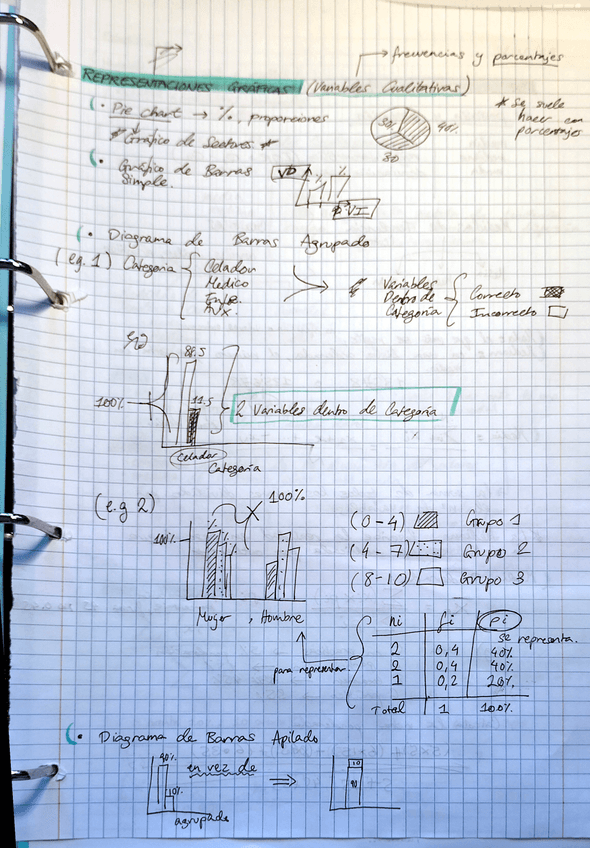 → frecuencias y porcentajes
REPRESENTACIONES GRÁFICAS (Variables Cualitativas)
• Pie chart → %, proporciones
* Gráfico de Sectores *
30% 40%
30
* Se suele
hacer con
porcentajes
• Gráfico de Barras
Simple.
VD
% %
VI
• Diagrama de Barras Agrupado
(eg. 1) Categoría
Celador
Medico
Enfe.
Aux.
Variables
Dentro de
Categoría
Correcto
Incorrecto
88.5
11.5
100%
2 Variables dentro de Categoría
Celador
Categoría
(e.g 2)
100%
100%
% % %
Mujer, Hombre
(0-4) Grupo 1
(4-7) Grupo 2
(8-10) Grupo 3
para representar
ni fi pi
se representa.
2 0,4 40%
2 0,4 40%
1 0,2 20%
Total 1 100%
• Diagrama de Barras Apilado
90%
10%
agrupado
en vez de
⇒
10
90